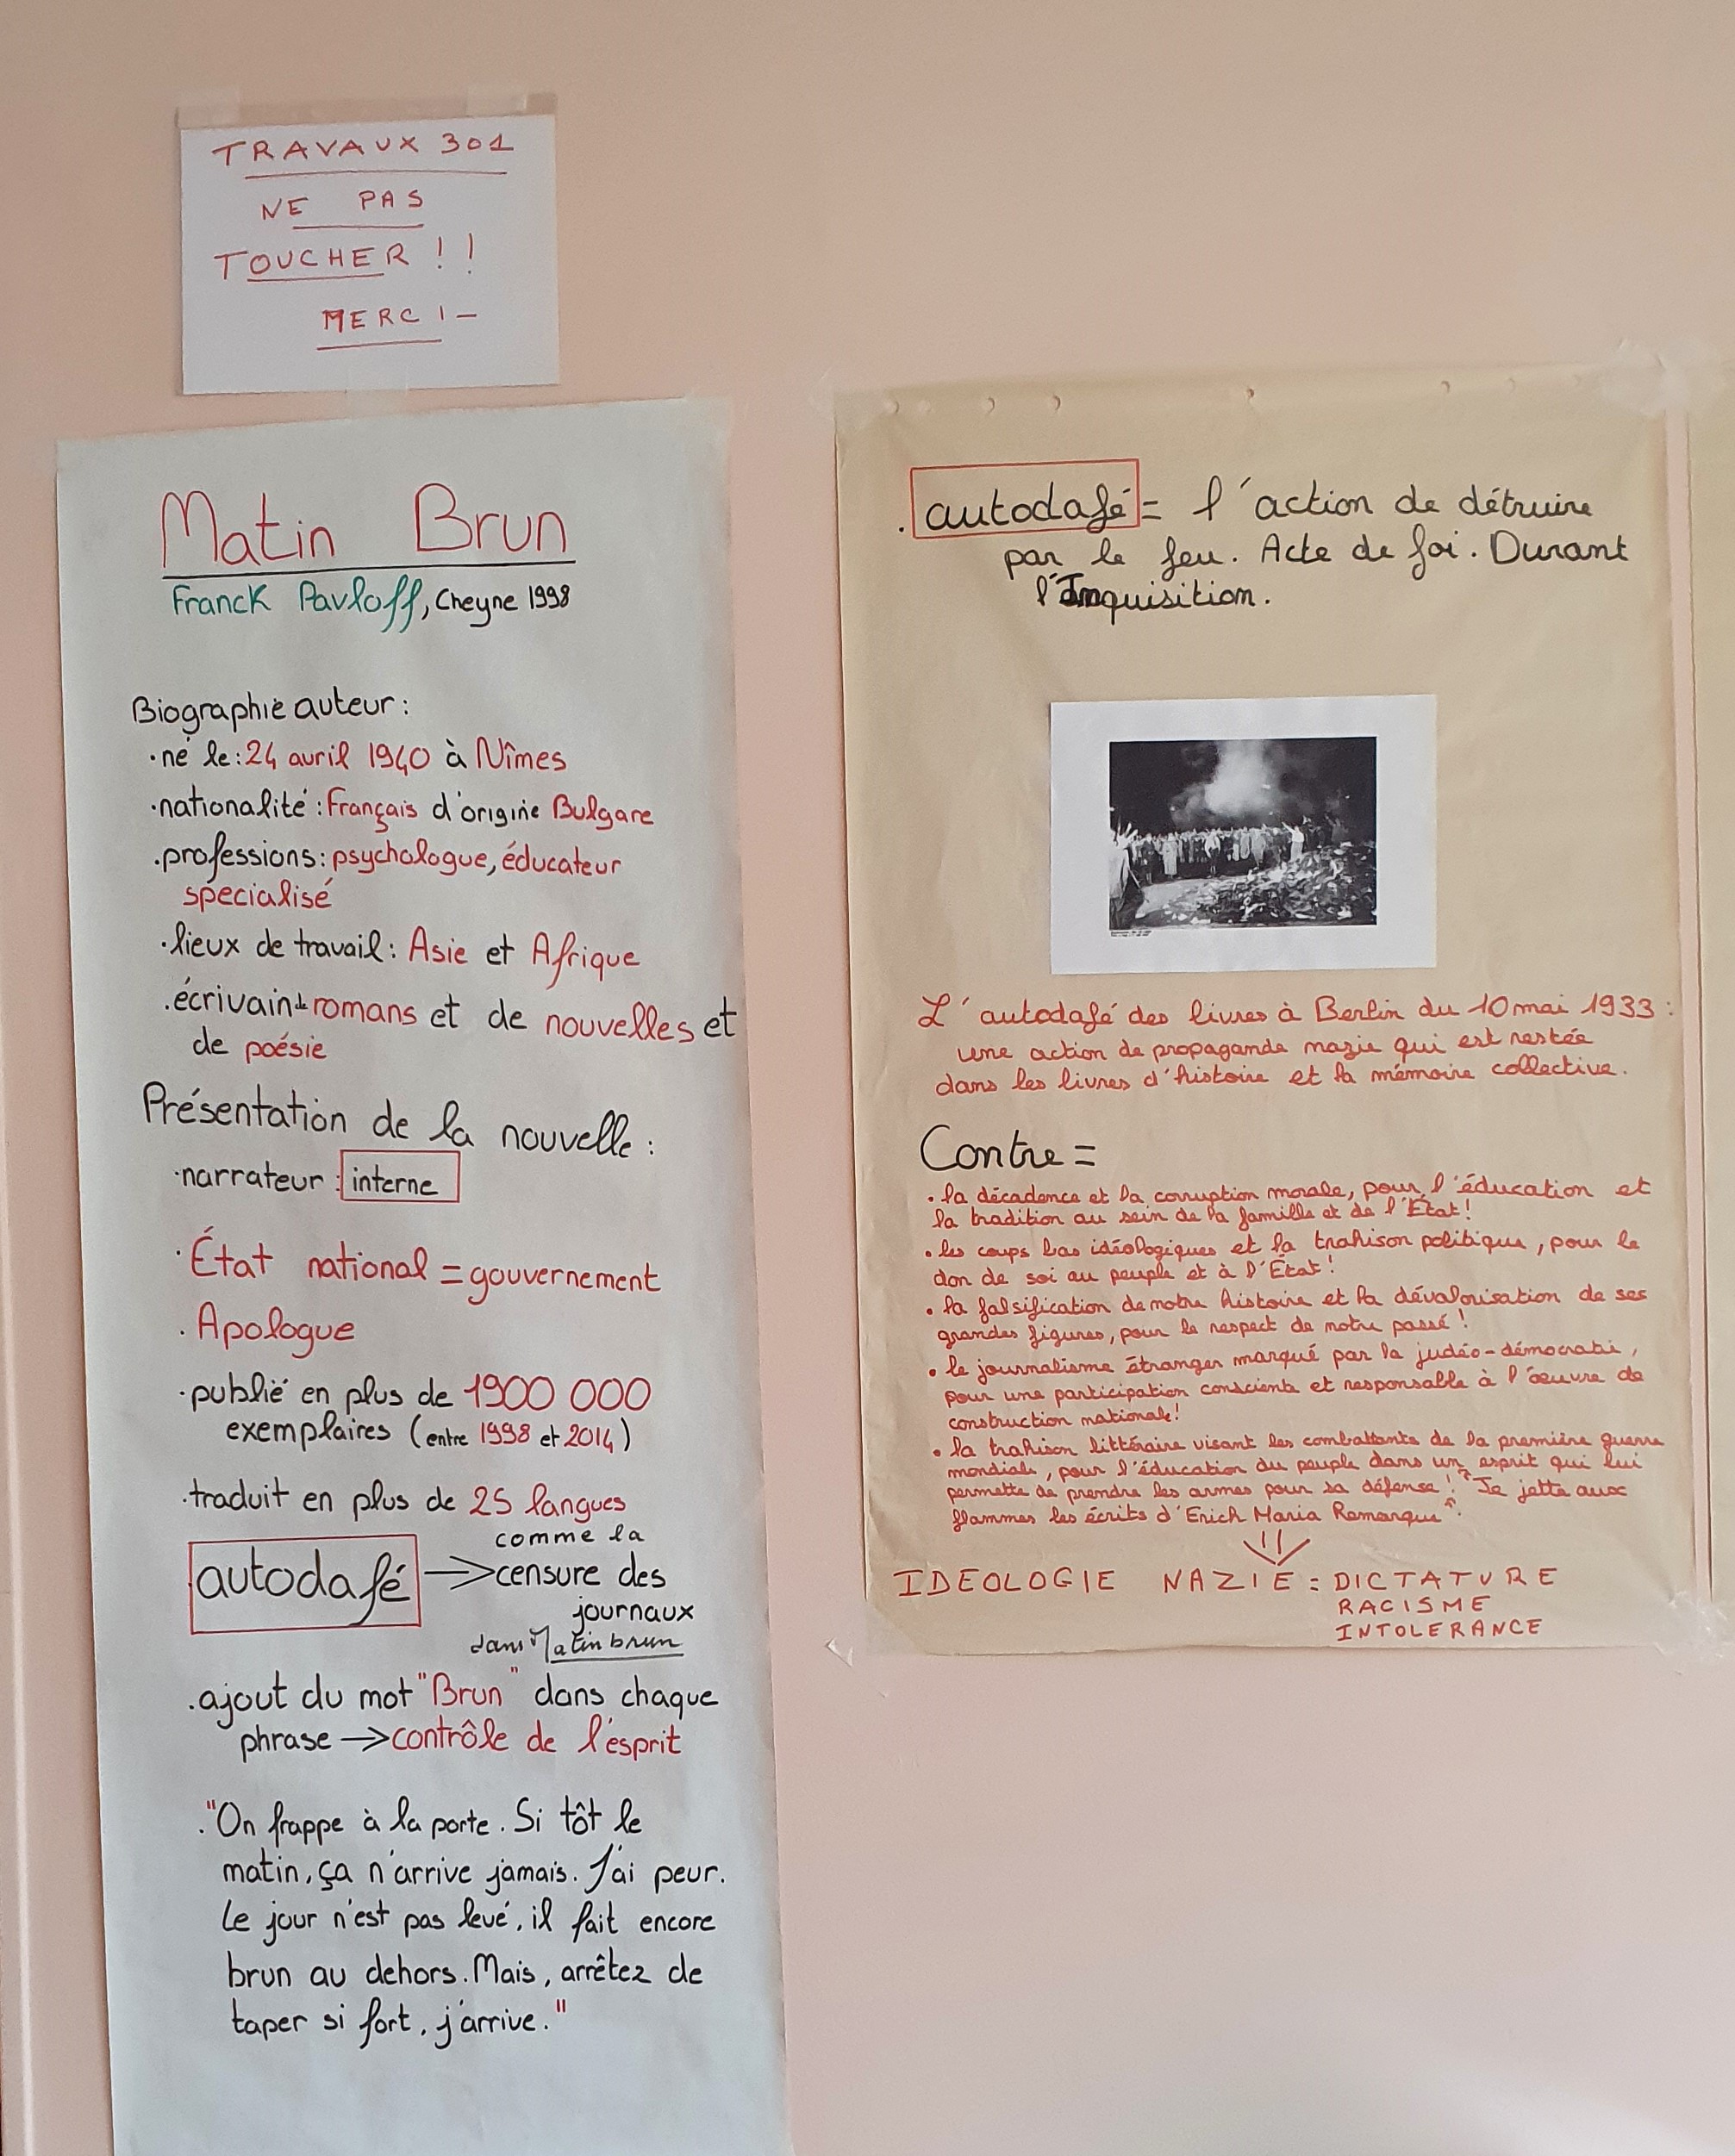 TRAVAUX 301
NE PAS
TOUCHER !!
MERCI –
Matin Brun
Franck Pavloff, Cheyne 1998
Biographie auteur :
·né le : 24 avril 1940 à Nîmes
·nationalité : Français d'origine Bulgare
·professions : psychologue, éducateur
spécialisé
·lieux de travail : Asie et Afrique
·écrivain de romans et de nouvelles et
de poésie
Présentation de la nouvelle :
·narrateur : interne
·État national = gouvernement
·Apologue
·publié en plus de 1900 000
exemplaires (entre 1998 et 2014)
·traduit en plus de 25 langues
autodafé → comme la
censure des
journaux
dans Matin brun
·ajout du mot "Brun" dans chaque
phrase → contrôle de l'esprit
·"On frappe à la porte. Si tôt le
matin, ça n'arrive jamais. J'ai peur.
Le jour n'est pas levé, il fait encore
brun au dehors. Mais, arrêtez de
taper si fort, j'arrive."
· autodafé = l'action de détruire
par le feu. Acte de foi. Durant
l'Inquisition.
L'autodafé des livres à Berlin du 10 mai 1933 :
une action de propagande nazie qui est restée
dans les livres d'histoire et la mémoire collective.
Contre =
• la décadence et la corruption morale, pour l'éducation et
la tradition au sein de la famille et de l'État !
• les coups bas idéologiques et la trahison politique, pour le
don de soi au peuple et à l'État !
• la falsification de notre histoire et la dévalorisation de ses
grandes figures, pour le respect de notre passé !
• le journalisme étranger marqué par la judéo-démocratie,
pour une participation consciente et responsable à l'œuvre de
construction nationale !
• la trahison littéraire visant les combattants de la première guerre
mondiale, pour l'éducation du peuple dans un esprit qui lui
permette de prendre les armes pour sa défense ! "Je jette aux
flammes les écrits d'Erich Maria Remarque".
IDEOLOGIE NAZIE : DICTATURE
RACISME
INTOLERANCE